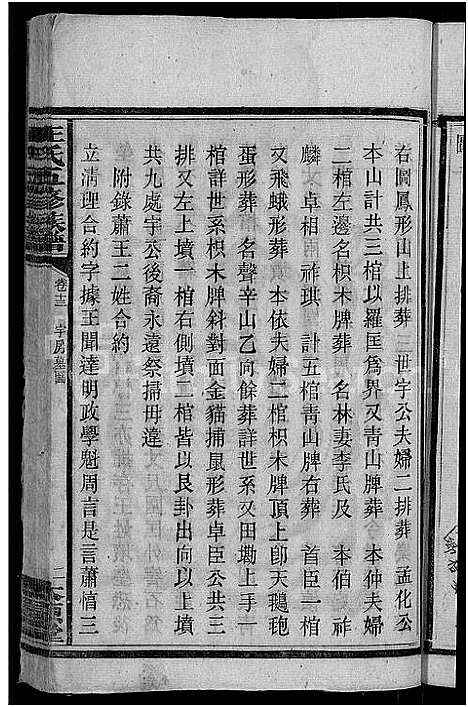 右圖鳳形山上排葬三世字公夫婦二排葬孟化公
本山計共三棺以羅圍為界又青山牌葬本仲夫婦
二棺左邊名枳木牌葬名林妻李氏及本伯祚
麟文卓相雨祚琪計五棺青山牌右葬首臣一棺
又飛蛾形葬本依夫婦二棺枳木牌頂上卽天鵝砲
蛋形葬名聲辛山乙向餘葬詳世系又田墈上手一
棺詳世系枳木牌斜對面金貓捕鼠形葬卓臣公共三
排又左上墳一棺右側墳二棺皆以艮卦出向以上墳
共九處字公後裔永遠祭掃毋違
附錄蕭王二姓合約
立清理合約字據王聞達明政學魁周言是言蕭惜三
王氏五修族譜
卷十三
字房墓圖
二